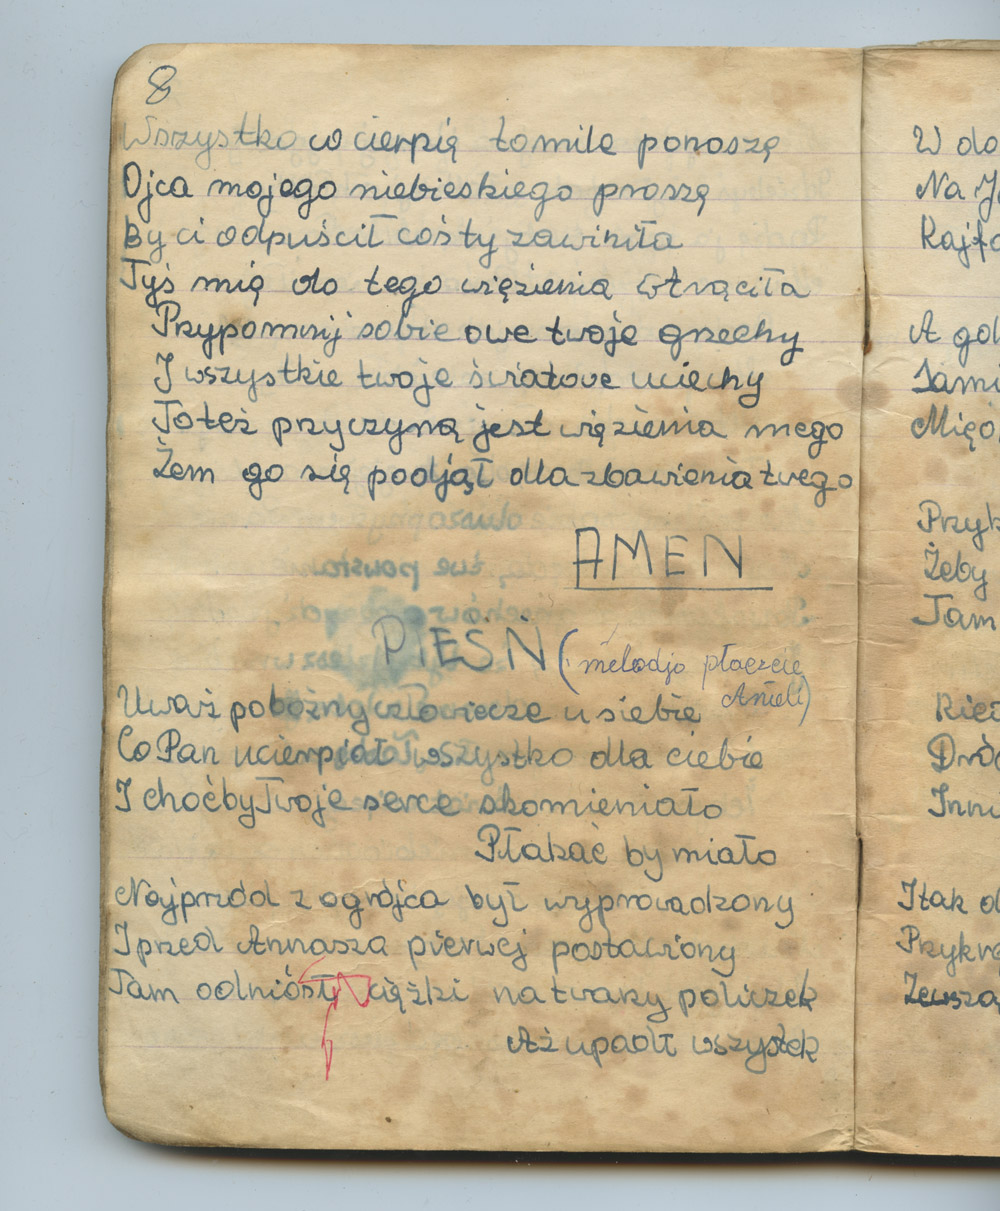 8
Wszystko co cierpię to mile ponoszę
Ojca mojego niebieskiego proszę
By ci odpuścił coś ty zawiniła
Tyś mię do tego więzienia wtrąciła
Przypomnij sobie owe twoje grzechy
I wszystkie twoje światowe uciechy
To też przyczyną jest więzienia mego
Żem go się podjął dla zbawienia twego
AMEN
PIEŚŃ (melodja płaczcie
Anieli)
Uważ pobożny człowiecze u siebie
Co Pan ucierpiał wszystko dla ciebie
I choćby Twoje serce skamieniało
Płakać by miało
Najprzód z ogrójca był wyprowadzony
I przed Annasza pierwej postawiony
Tam odniósł ciężki na twarzy policzek
Aż upadł wszystek
W do
Na
Kajfa
A go
Sami
Międ
Przyk
Żeby
Tam
Kied
Dró
Inni
I tak
Przykr
Zewszą